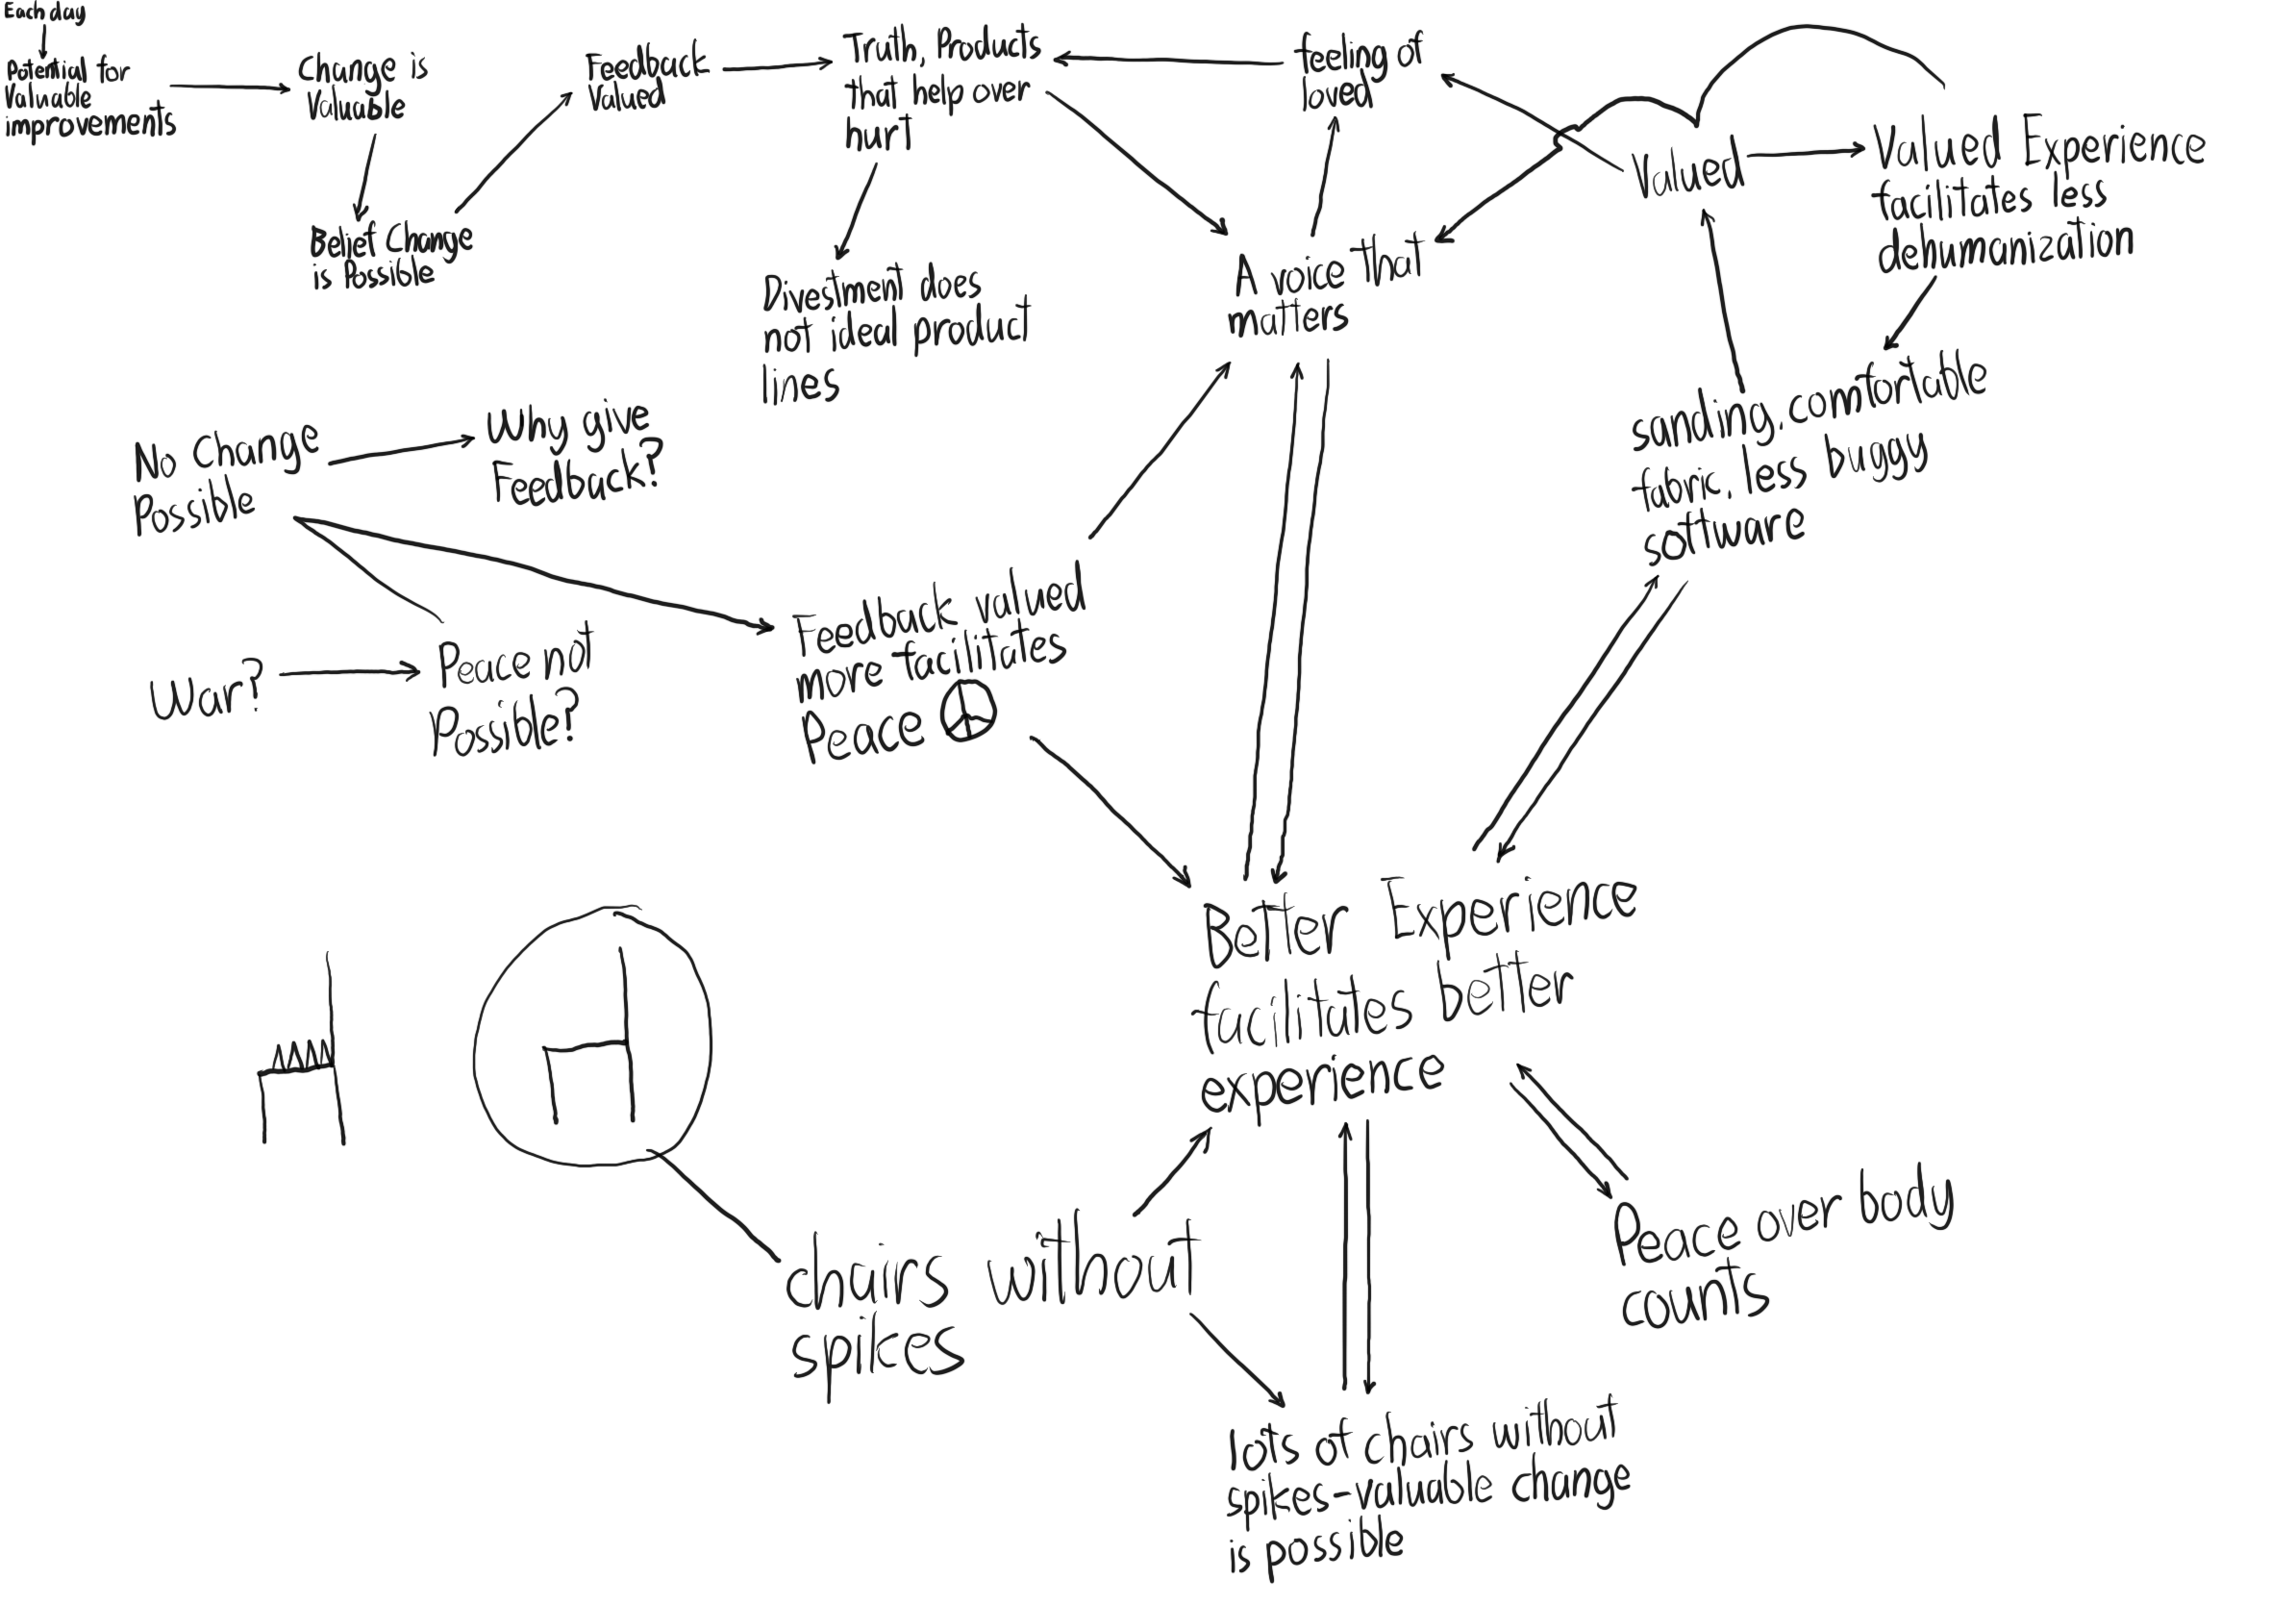 Each day
Potential for
Valuable
improvements
Change is
Valuable
Belief Change
is Possible
Feedback
Valued
Truth, Products
that help over
hurt
Divestment does
not ideal product
lines
feeling of
loved
A voice that
matters
Valued
Valued Experience
facilitates less
dehumanization
sanding, comfortable
fabric, less buggy
software
No Change
Possible
Why give
Feedback?
War?
Peace not
Possible?
Feedback valued
more facilitates
Peace
Better Experience
facilitates better
experience
chairs without
spikes
Peace over body
counts
lots of chairs without
spikes-valuable change
is possible